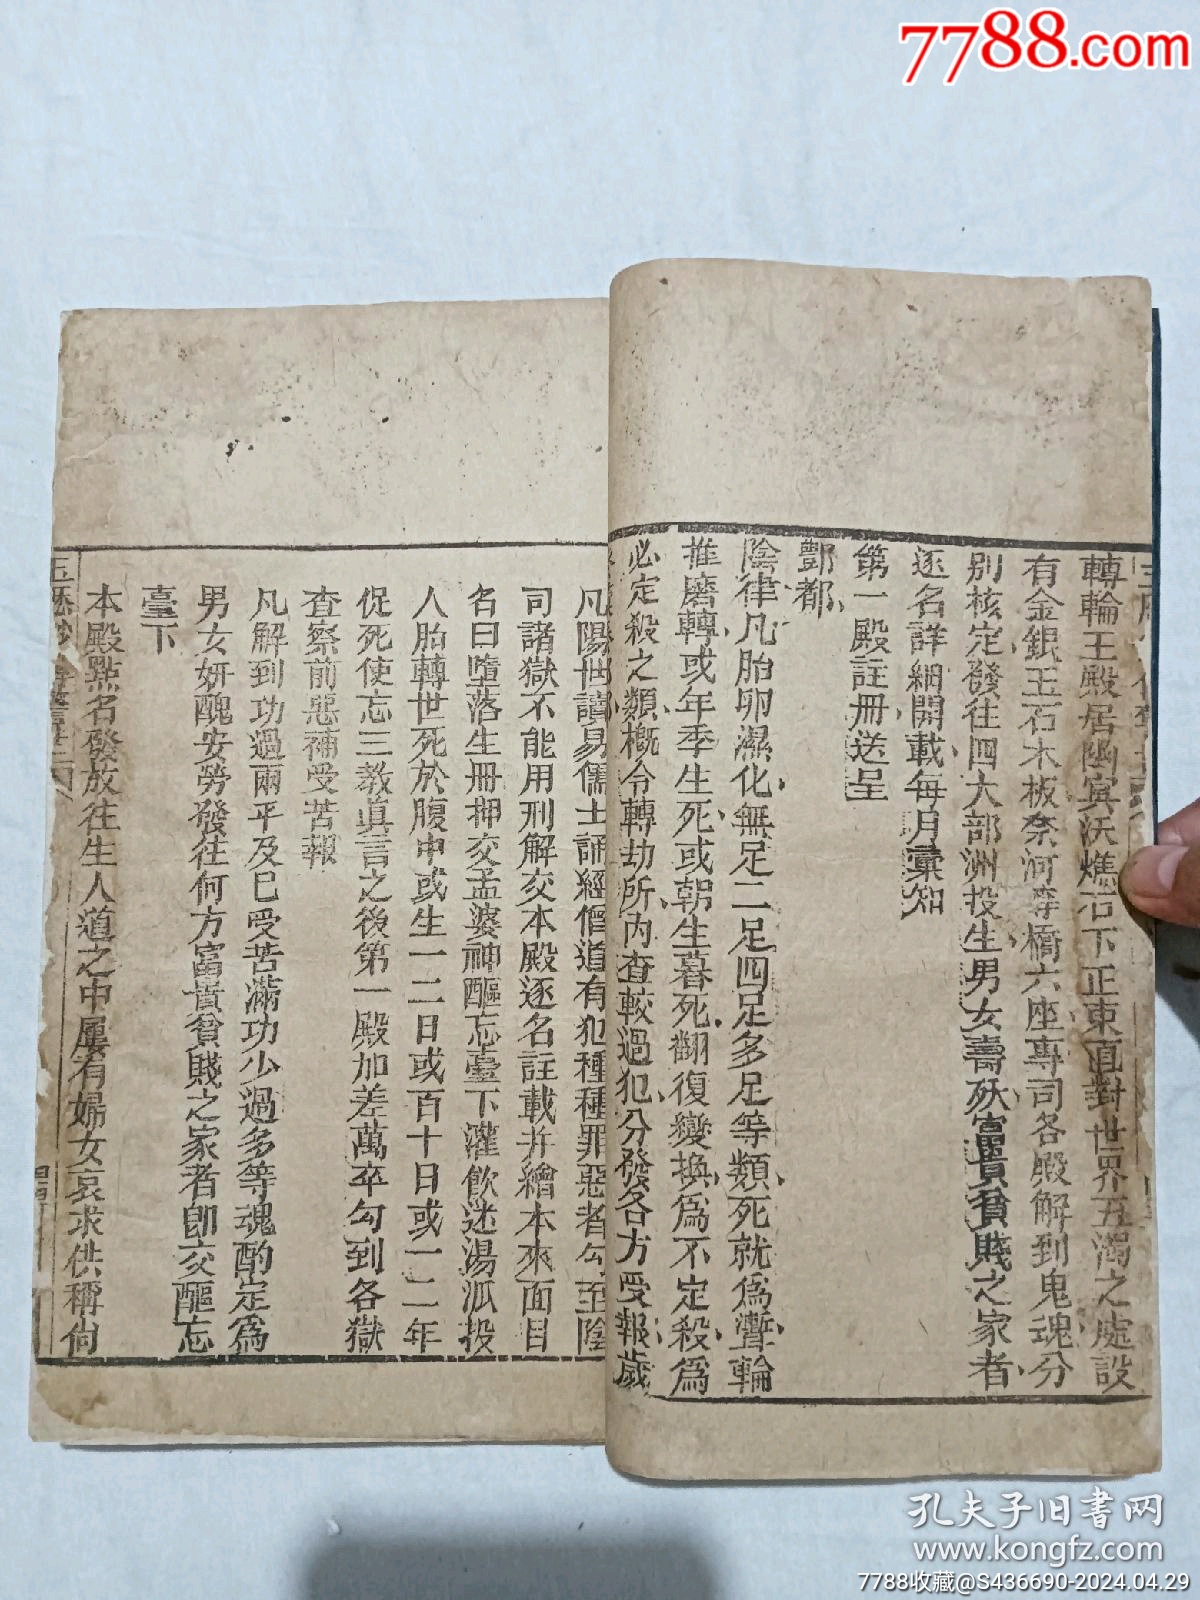 7788.com
轉輪王殿居幽冥沃燋石下正東直對世界五濁之處設
有金銀玉石木板奈河等橋六座專司各殿解到鬼魂分
別核定發往四大部洲投生男女壽殀富貴貧賤之家者
逐名詳細開載每月彙知
第一殿註冊送呈
酆都
陰律凡胎卵濕化無足二足四足多足等類死就為漸輪
推磨轉或年季生死或朝生暮死翻復變換為不定殺為
必定殺之類概令轉劫所內查較過犯分發各方受報歲
凡陽世讀易儒士誦經僧道有犯種種罪惡者勾至陰
司諸獄不能用刑解交本殿逐名註載并繪本來面目
名曰墮落生冊押交孟婆神醧忘臺下灌飲迷湯派投
人胎轉世死於腹中或生一二日或百十日或一二年
促死使忘三教真言之後第一殿加差萬卒勾到各獄
查察前惡補受苦報
凡解到功過兩平及已受苦滿功少過多等魂酌定為
男女妍醜安勞發往何方富貴貧賤之家者卽交醧忘
臺下
本殿點名發放往生人道之中屢有婦女哀求供稱尙
孔夫子旧书网
www.kongfz.com
7788收藏@S436690-2024.04.29